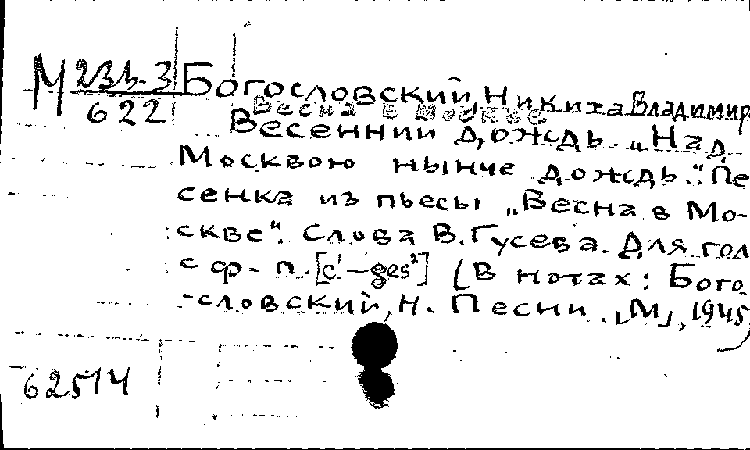 М 231-3
622
Богословский, Никита Владимир
Весна в Москве
Весенний дождь. „Над
Москвою нынче дождь." Пе
сенка из пьесы „Весна в Мо-
скве". Слова В. Гусева. Для гол
с ф-п. [c¹-ges²] (В нотах: Бого
-словский, Н. Песни. М, 1945)
62514